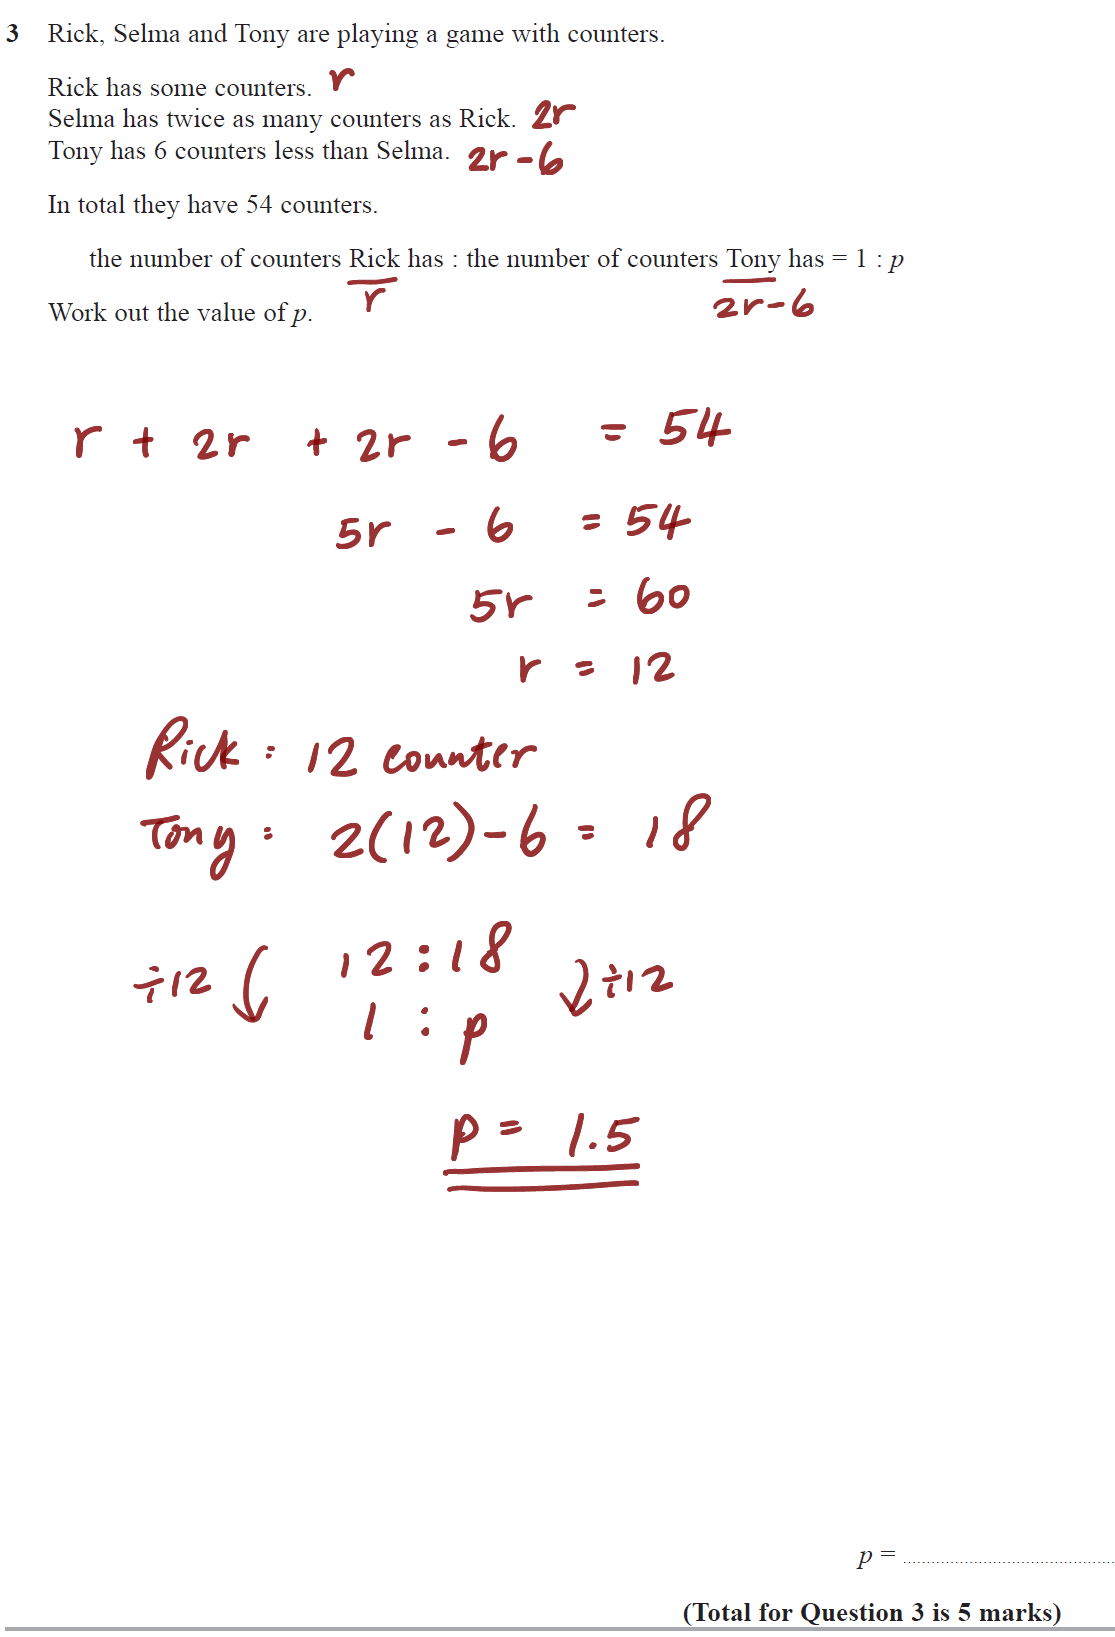 3 Rick, Selma and Tony are playing a game with counters.
Rick has some counters. r
Selma has twice as many counters as Rick. 2r
Tony has 6 counters less than Selma. 2r - 6
In total they have 54 counters.
the number of counters Rick has : the number of counters Tony has = 1 : p
r 2r - 6
Work out the value of p.
r + 2r + 2r - 6 = 54
5r - 6 = 54
5r = 60
r = 12
Rick : 12 counter
Tony : 2(12) - 6 = 18
÷12 12 : 18 ÷12
1 : p
p = 1.5
p = ..............................................
(Total for Question 3 is 5 marks)